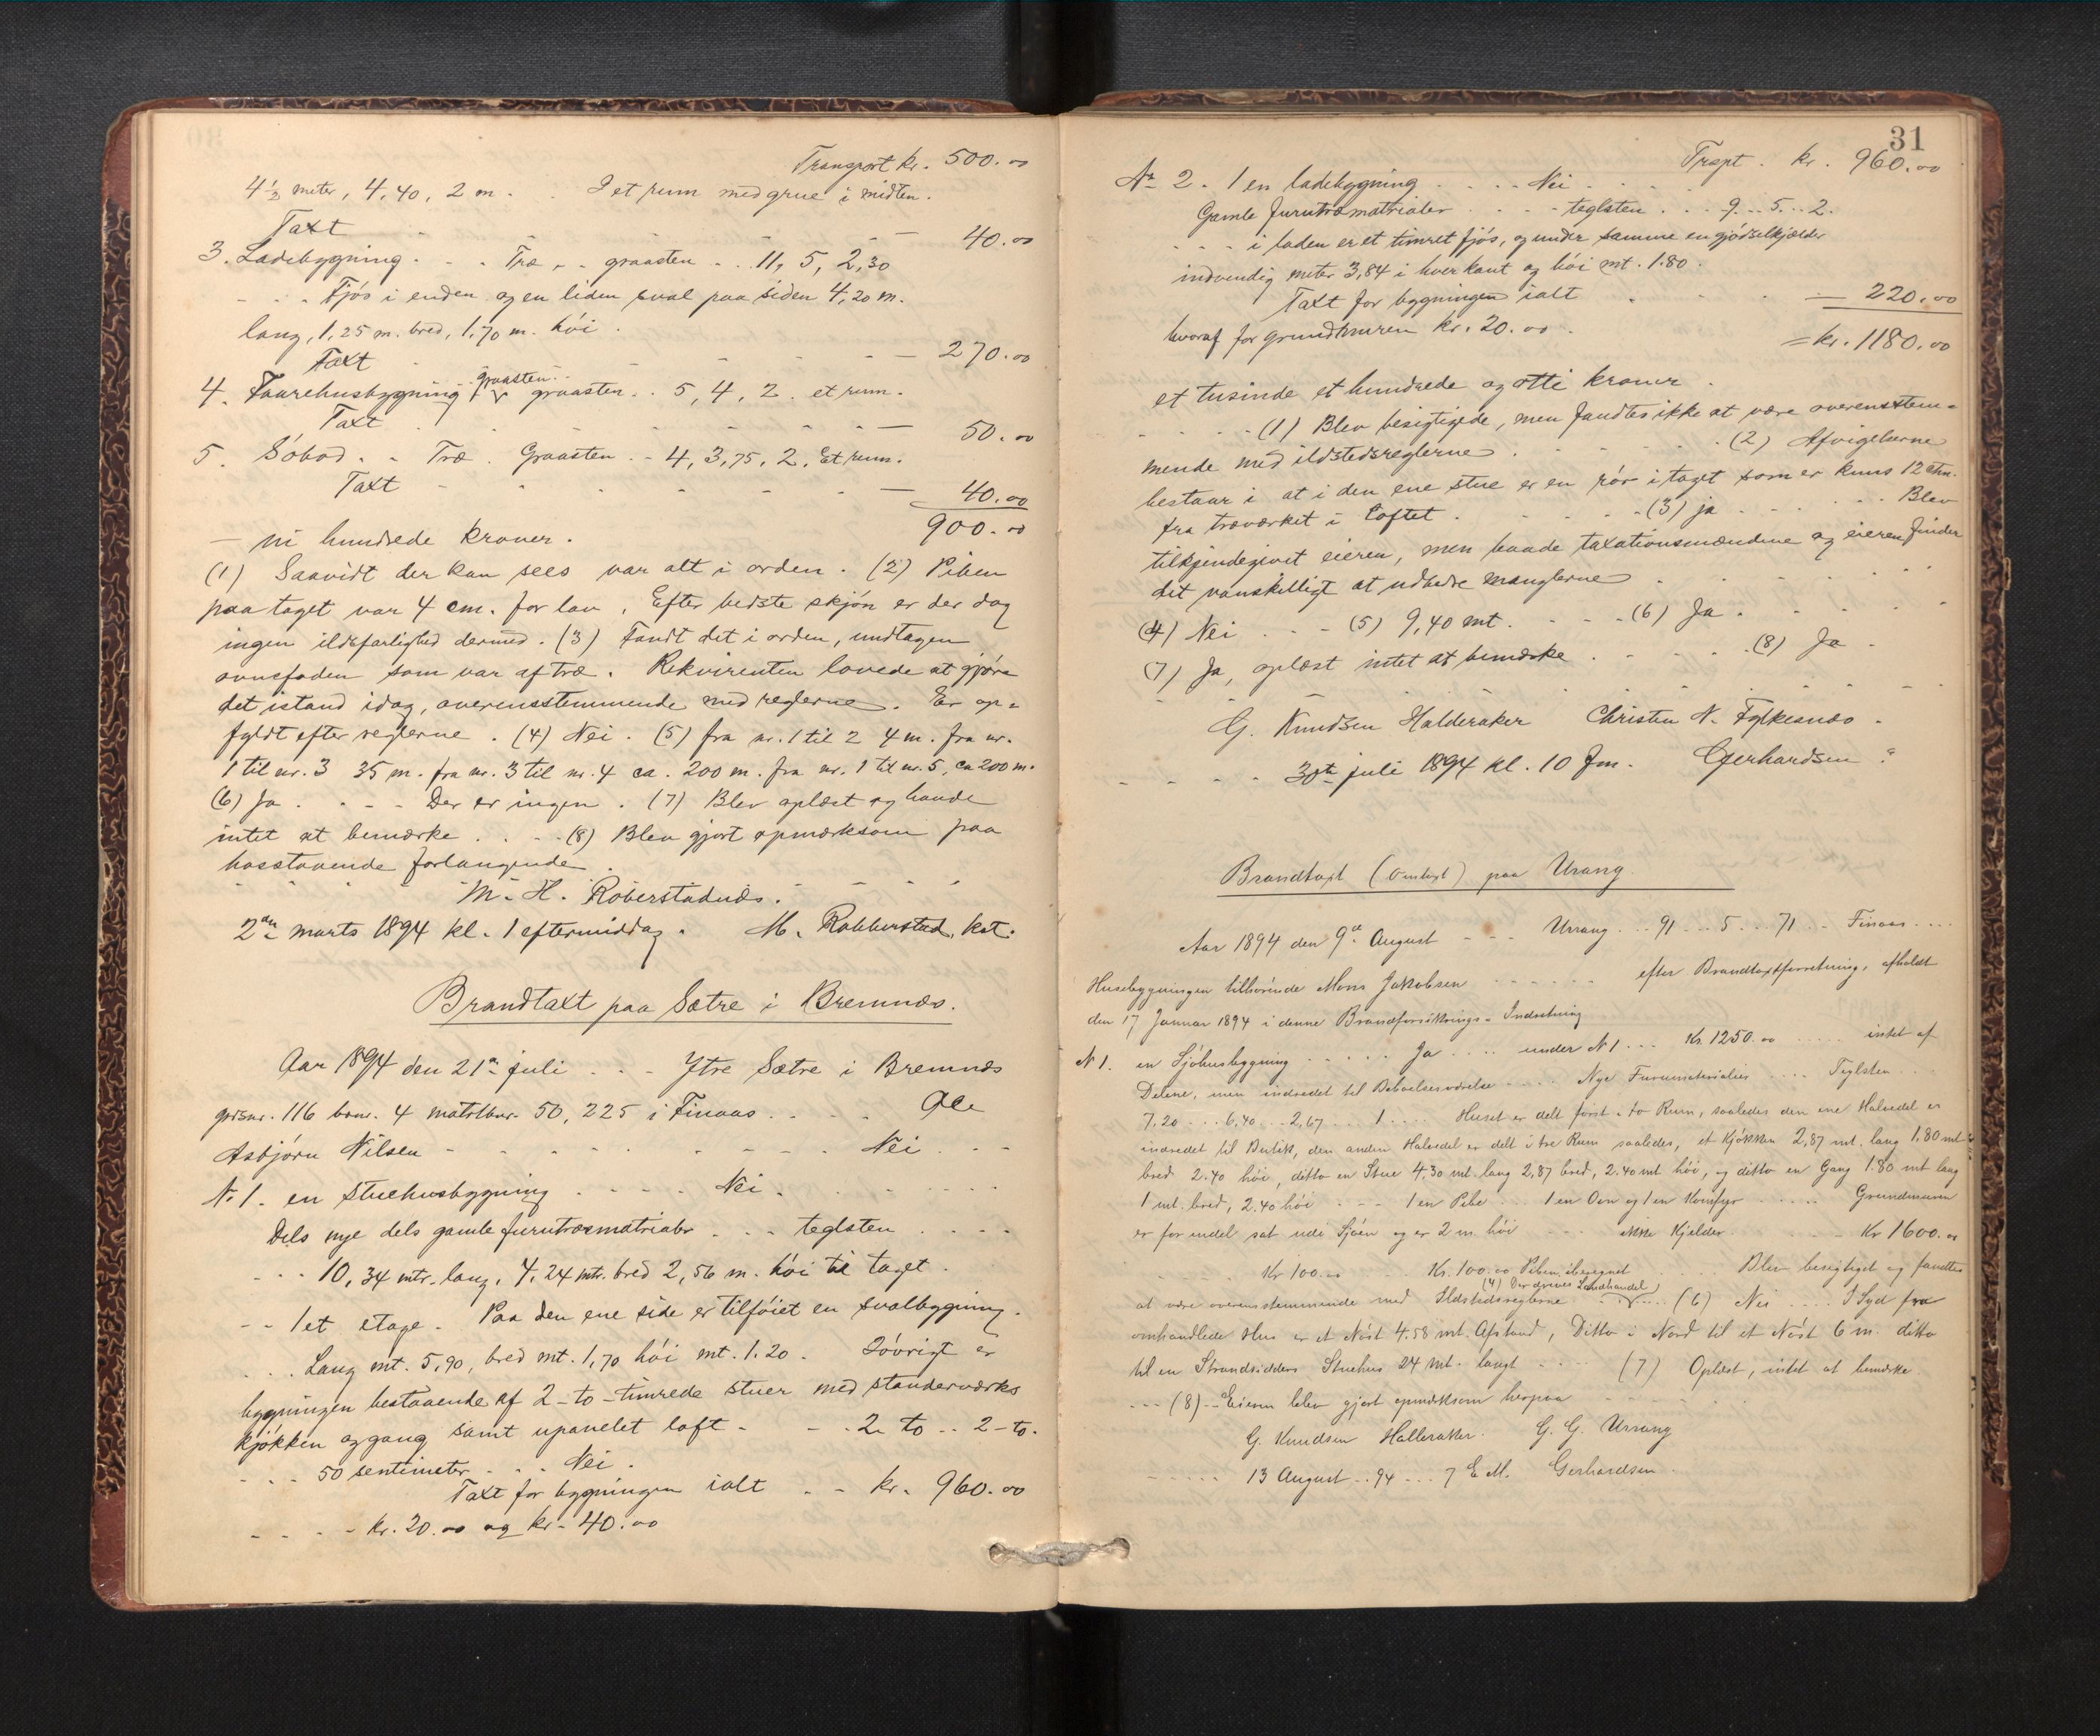 Transport kr. 500.00
4 1/2 meter, 4,40, 2 m. . I et rum med grue i midten.
Taxt - - - - 40.00
3. Ladebygning. - - Træ - - graasten - . 11, 5, 2,30
- - - Fjös i enden og en liden sval paa siden 4,20 m.
lang, 1,25 m. bred, 1,70 m. höi.
Taxt - - - - 270.00
graasten
4. Faarehusbygning graasten. . 5, 4, 2. et rum.
Taxt - - - - 50.00
5. Söbod. - Træ. Graasten. - 4, 3,75, 2. Et rum.
Taxt - - - - 40.00
900.00
- ni hundrede kroner.
(1) Saavidt der kan sees var alt i orden. (2) Piben
paa taget var 4 cm. for lav. Efter bedste skjön er der dog
ingen ildsfarlighed dermed. (3) Fandt det i orden, undtagen
ovnsfoden som var af træ. Rekvirenten lovede at gjöre
det istand idag, overensstemmende med reglerne. Er op-
fyldt efter reglerne. (4) Nei. (5) fra nr. 1 til 2 4 m. fra nr.
1 til nr. 3 35 m. fra nr. 3 til nr. 4 ca. 200 m. fra nr. 1 til nr. 5, ca 200 m.
(6) Ja. - - - Der er ingen. (7) Blev oplæst og havde
intet at bemærke. - - - (8) Blev gjort opmærksom paa
hosstaaende forlangende.
M. H. Röberstadnæs.
2den marts 1894 kl. 1 eftermiddag. M. Robberstad, kst.
Brandtaxt paa Sætre i Bremnæs.
Aar 1894 den 21de juli - - - Ytre Sætre i Bremnæs
grdsnr. 116 brnr. 4 matrlnr. 50, 225 i Finaas - - - Ole
Asbjørn Nilsen - - - - - Nei - -
No 1. en stuehusbygning - - - - Nei. - - -
Dels nye dels gamle furutræmatrialer - - - teglsten - - -
- - - 10,34 mtr. lang, 4,24 mtr. bred 2,56 m. höi til taget.
- - 1 et etage. Paa den ene side er tilföiet en svalbygning.
- - - Lang mt. 5,90, bred mt. 1,70 höi mt. 1.20. Iövrigt er
bygningen bestaaende af 2 - to - timrede stuer med standerværks
kjökken og gang samt upanelet loft - - - 2 to - - 2 - to.
- - - 50 sentimeter - - - Nei.
Taxt for bygningen ialt - - kr. 960.00
- - - - kr. 20.00 og kr. 40.00
31
Trspt. kr. 960.00
No 2. 1 en ladebygning - - - - Nei - - -
Gamle furutræmatrialer - - - - teglsten - - - 9 - - 5 - - 2.
- - - i laden er et timret fjös, og under samme en gjödselkjælder
indvendig meter 3,84 i hver kant og höi mt. 1.80.
Taxt for bygningen ialt - - - 220.00
hvoraf for grundmuren kr. 20.00.
= kr. 1180.00
et tusinde et hundrede og otti kroner.
- - - - (1) Blev besigtigede, men fandtes ikke at være overensstem-
mende med ildstedsreglerne - - - - (2) Afvigelserne
bestaar i at i den ene stue er en rör i taget som er kuns 12 ctm.
fra træværket i Loftet. - - - - (3) ja - - - Blev
tilkjendegivet eieren, men baade taxationsmændene og eieren finder
det vanskelligt at udbedre manglerne - - -
(4) Nei - - - (5) 9,40 mt. - - - (6) Ja. - - -
(7) Ja, oplæst intet at bemærke - - - - (8) Ja -
G. Knudsen Halderaker Christen N. Fylkesnæs.
- - - - 30te juli 1894 kl. 10 fm. Gerhardsen
Brandtaxt (Omtaxt) paa Urang.
Aar 1894 den 9de August - - - Urang - - 91 - - 5 - - 71 - - Finaas - - -
Husebygningen tilhørende Mons Jakobsen - - - - - - efter Brandtaxtforretning, afholdt
den 17 Januar 1894 i denne Brandforsikrings-Indretning
N 1. en Sjöhusbygning - - - - - Ja - - - - under N 1 - - - Kr. 1250.00 - - - - intet af
Delene, men indredet til Beboelsesværelse - - - - Nye Furumaterialier - - - - Teglsten - - -
7.20 - - - 6,40 - - 2,67 - - - 1 - - - - Huset er delt först i to Rum, saaledes den ene Halvedel er
indredet til Butik, den anden Halvedel er delt i tre Rum saaledes, et Kjökken 2,87 mt. lang 1,80 mt
bred 2.40 höi, ditto en Stue 4.30 mt. lang 2,87 bred, 2.40 mt höi, og ditto en Gang 1.80 mt lang
1 mt. bred, 2.40 höi - - - 1 en Pibe - - 1 en Ovn og 1 en Komfyr - - - - - Grundmuren
er for endel sat udi Sjöen og er 2 m. höi - - - ikke Kjelder - - - - Kr 1600.00
- - - Kr 100.00 - - - Kr. 100.00 Piben iberegnet - - - Blev besigtiget og fandtes
(4) Der drives Landhandel
at være overensstemmende med Ildstedsreglerne - - - - (6) Nei - - - - I Syd fra
omhandlede Hus er et Nöst 4.58 mt. Afstand, Ditto i Nord til et Nöst 6 m. ditto
til en Strandsidders Stuehus 24 mt. langt - - - - (7) Oplæst, intet at bemærke.
- - - (8) - Eieren blev gjort opmærksom herpaa - - -
G. Knudsen Halleraker. G. G. Urang
- - - - - 13 August - - 94 - - - 7 E M. Gerhardsen.